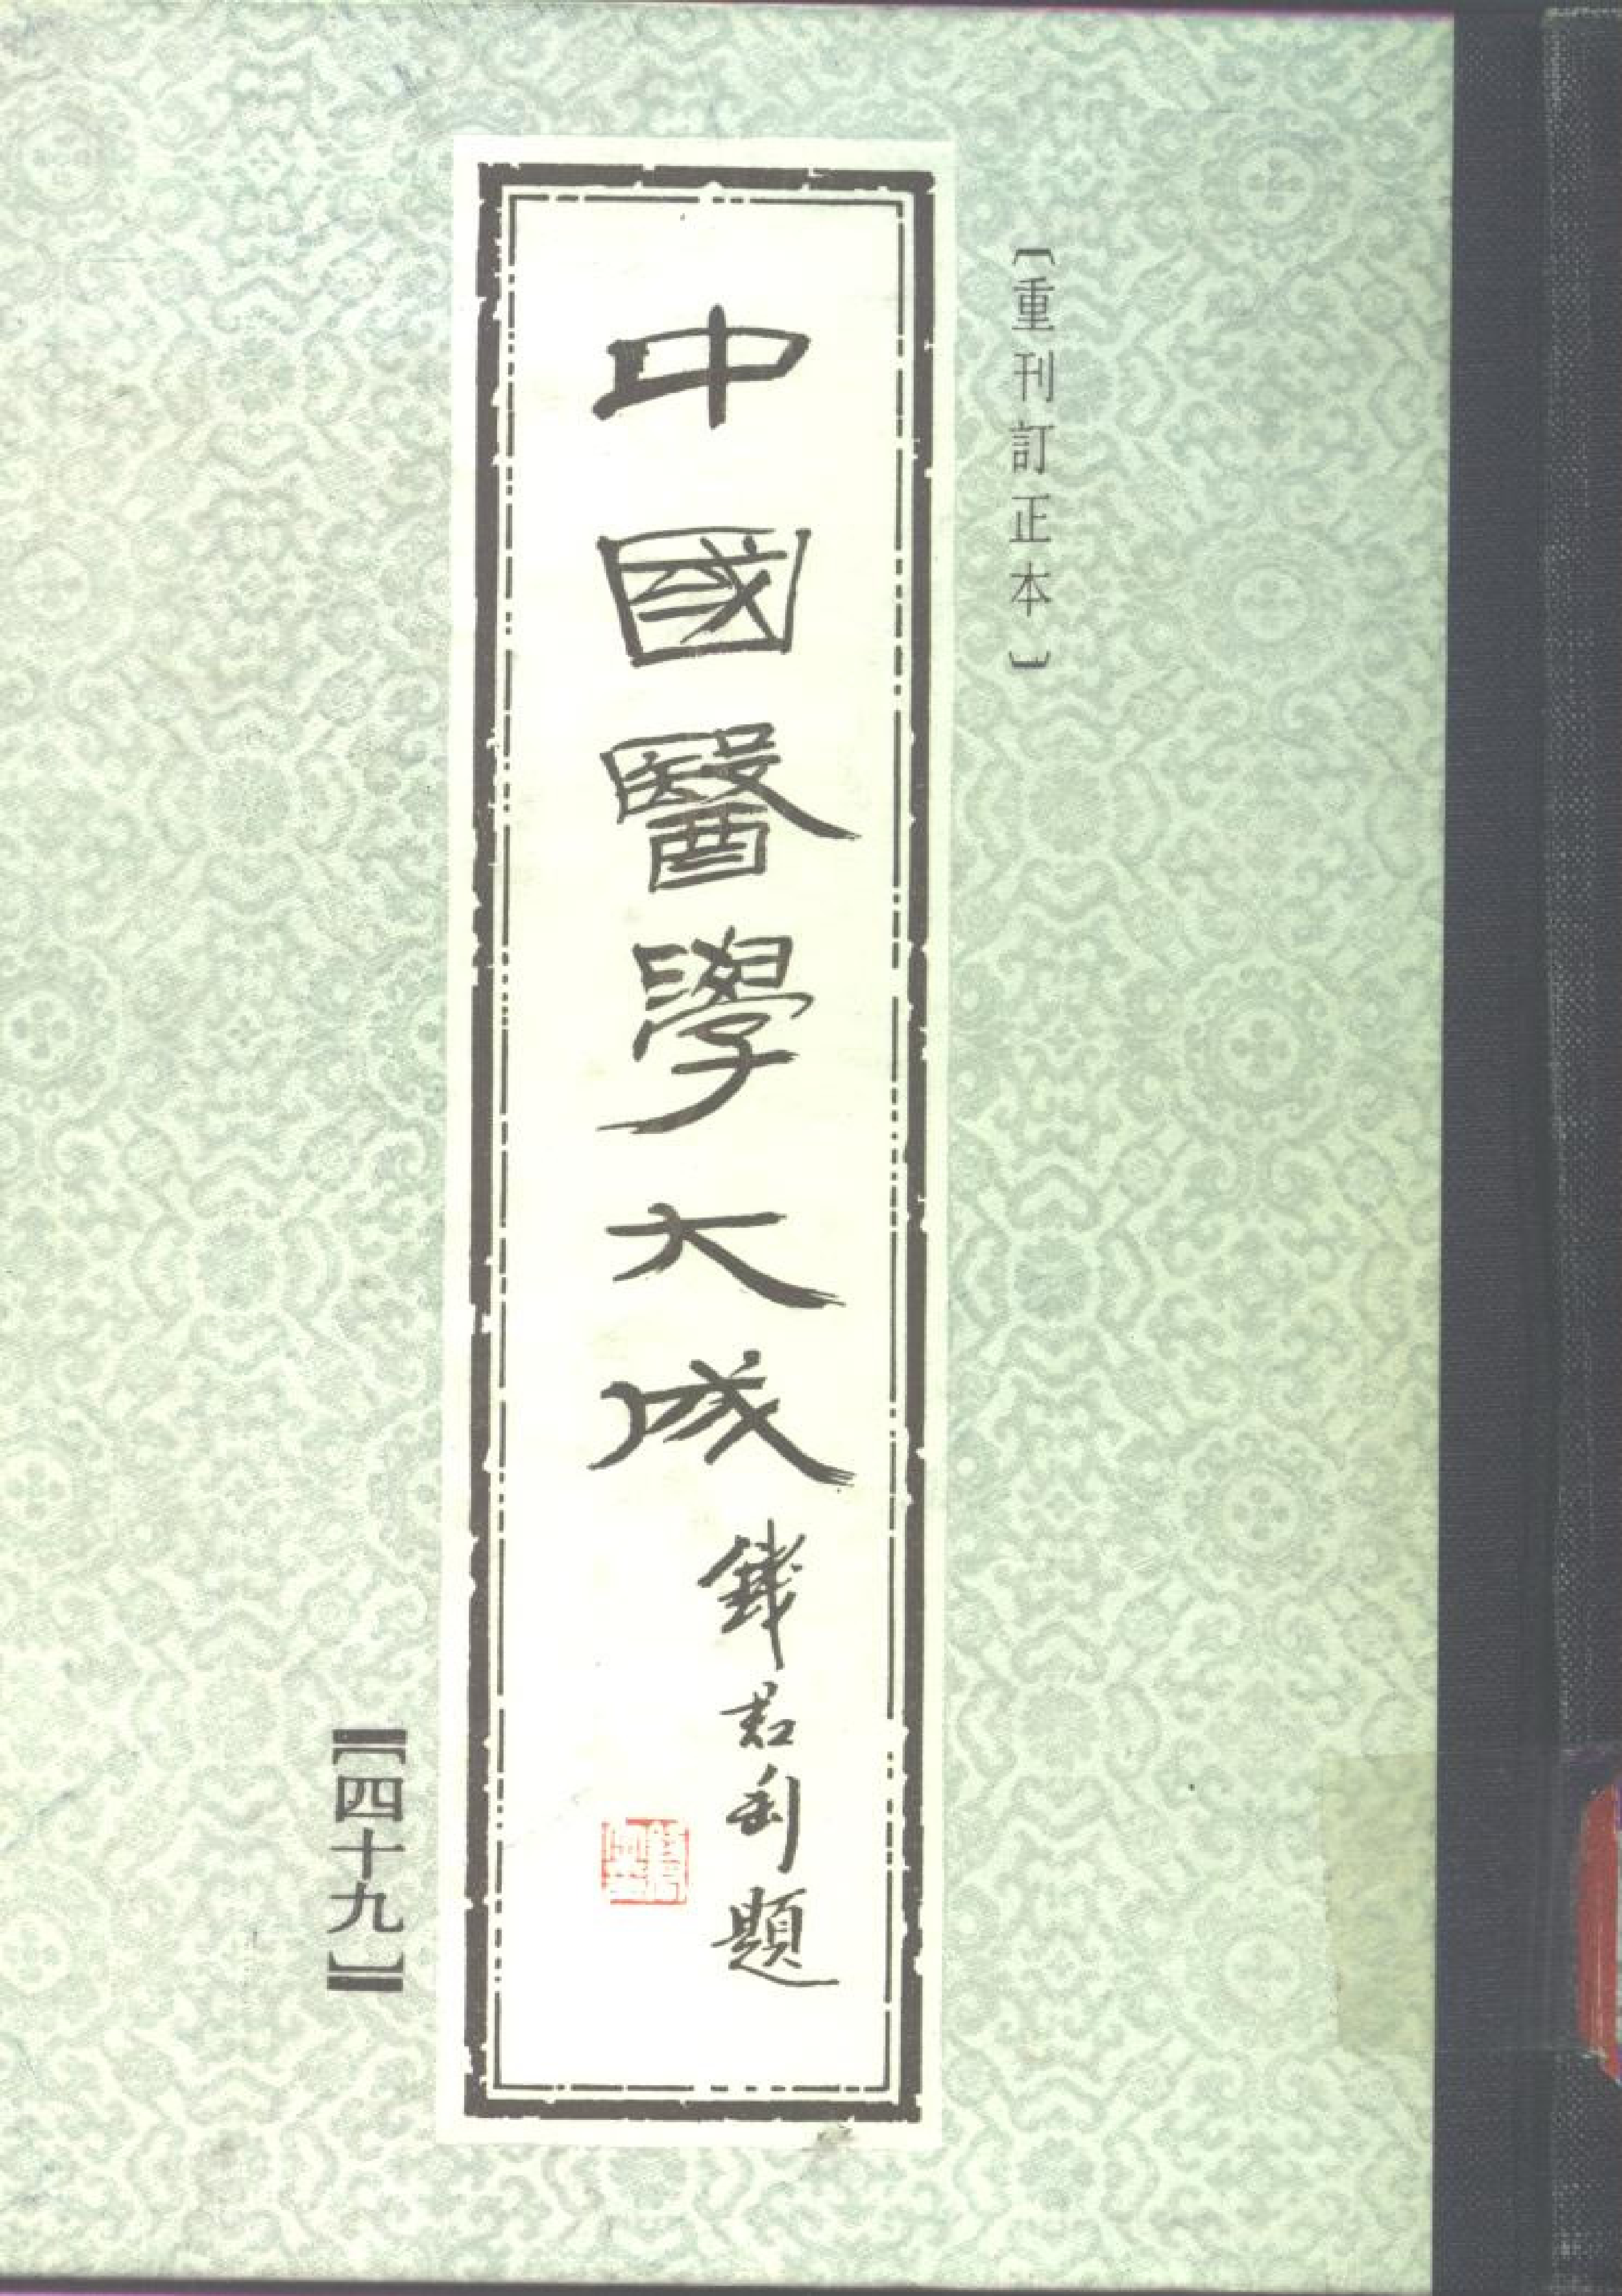 〔重刊訂正本〕
中國醫學大成
錢君匋題
【四十九】